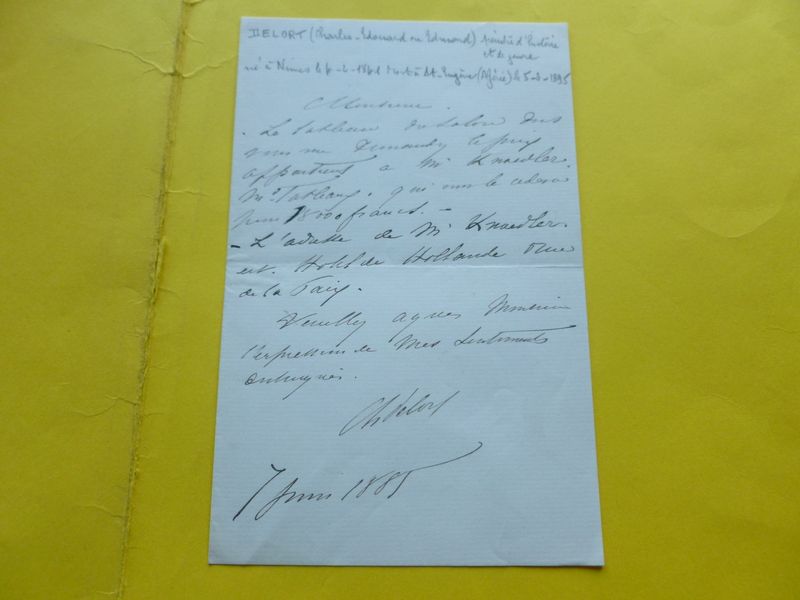 DELORT (Charles-Edouard ou Edmond) peintre d'histoire
et de genre
né à Nîmes le 1841 mort à St-Eugène (Algérie) le 5-3-1895
Monsieur.
Le tableau du salon dont
vous me demandez le prix
appartient a Mr Knoedler.
Md Tableaux. qui vous le cédera
pour 18000 francs. -
- L'adresse de Mr Knoedler.
est. Hotel de Hollande rue
de la Paix.
Veuillez agréer Monsieur
l'expression de mes sentiments
distingués.
Ch Delort
7 Juin 1885